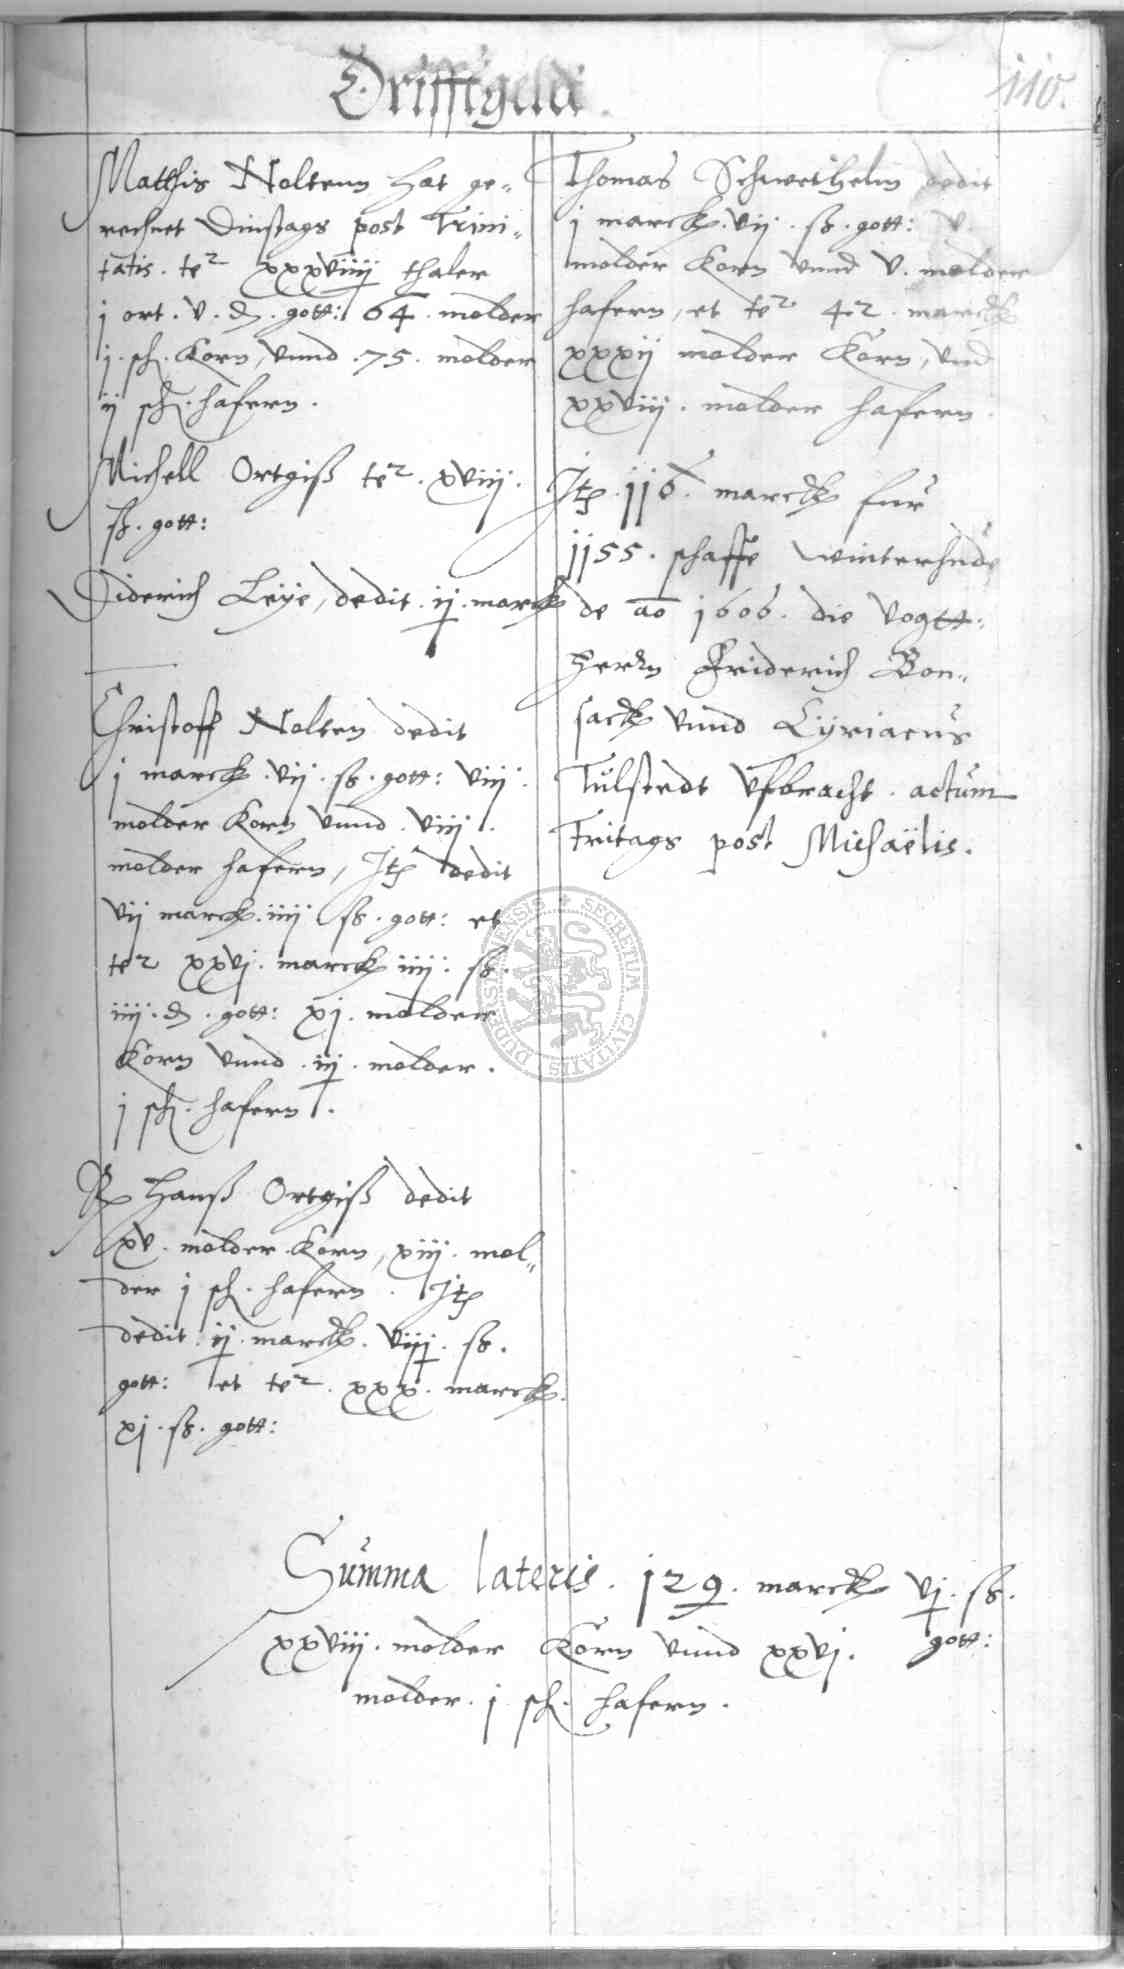 Drifftgeldt.
110.
Matthis Noltenn hat ge„
rechnet Dinstags post Trini„
tatis. te² xxxviiij thaler
j ort. v. ₰. gott: 64. molder
j. sch. Korn, vnnd .75. molder
ij sch. hafern.
Michell Ortgiß te². xviij.
ß. gott:
Diderich Leÿe, dedit. ij. marck
Christoff Nolten dedit
j marck. vij. ß. gott: viij.
molder Korn vnnd. viij.
molder hafern, Jtem dedit
vij marck. iiij ß. gott: et
te² xxvj. marck iiij. ß.
iiij. ₰. gott: xj. molder
Korn vnnd. iij. molder.
j sch. hafern.
Hanß Ortgiß dedit
xv. molder Korn, xiij. mol„
der j sch. hafern. Jtem
dedit. ij. marck. viij. ß.
gott: et te². xxx. marck.
xj. ß. gott:
Thomas Schwethelm dedit
j marck. vij. ß. gott: v.
molder Korn vnnd v. molder
hafern, et te² 42. marck
xxxij molder Korn, vnd
xxviij. molder hafern.
Jtem. 116. marck fur
1155. schaffe winterhude
de ao 1606. die vogtt:
herrn Friderich Bon„
sack vnnd Cyriacus
Tulstedt vfbracht. actum
Fritags post Michaëlis.
SECRETUM CIVITATIS DUDERSTADENSIS
Summa lateris. 129. marck vj. ß.
gott:
xxviij. molder Korn vnnd xxvj.
molder. j sch. hafern.